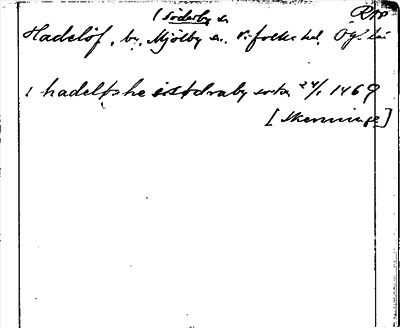 (Söderby sn RAP
Hadelöf, by, Mjölby sn. V:folke hd, Ög. län
i hadelfshe østdraby sokn 24/1 1469
[Skenninge]